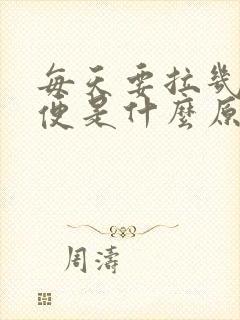 每天要拉幾
便是什麼原
周濤